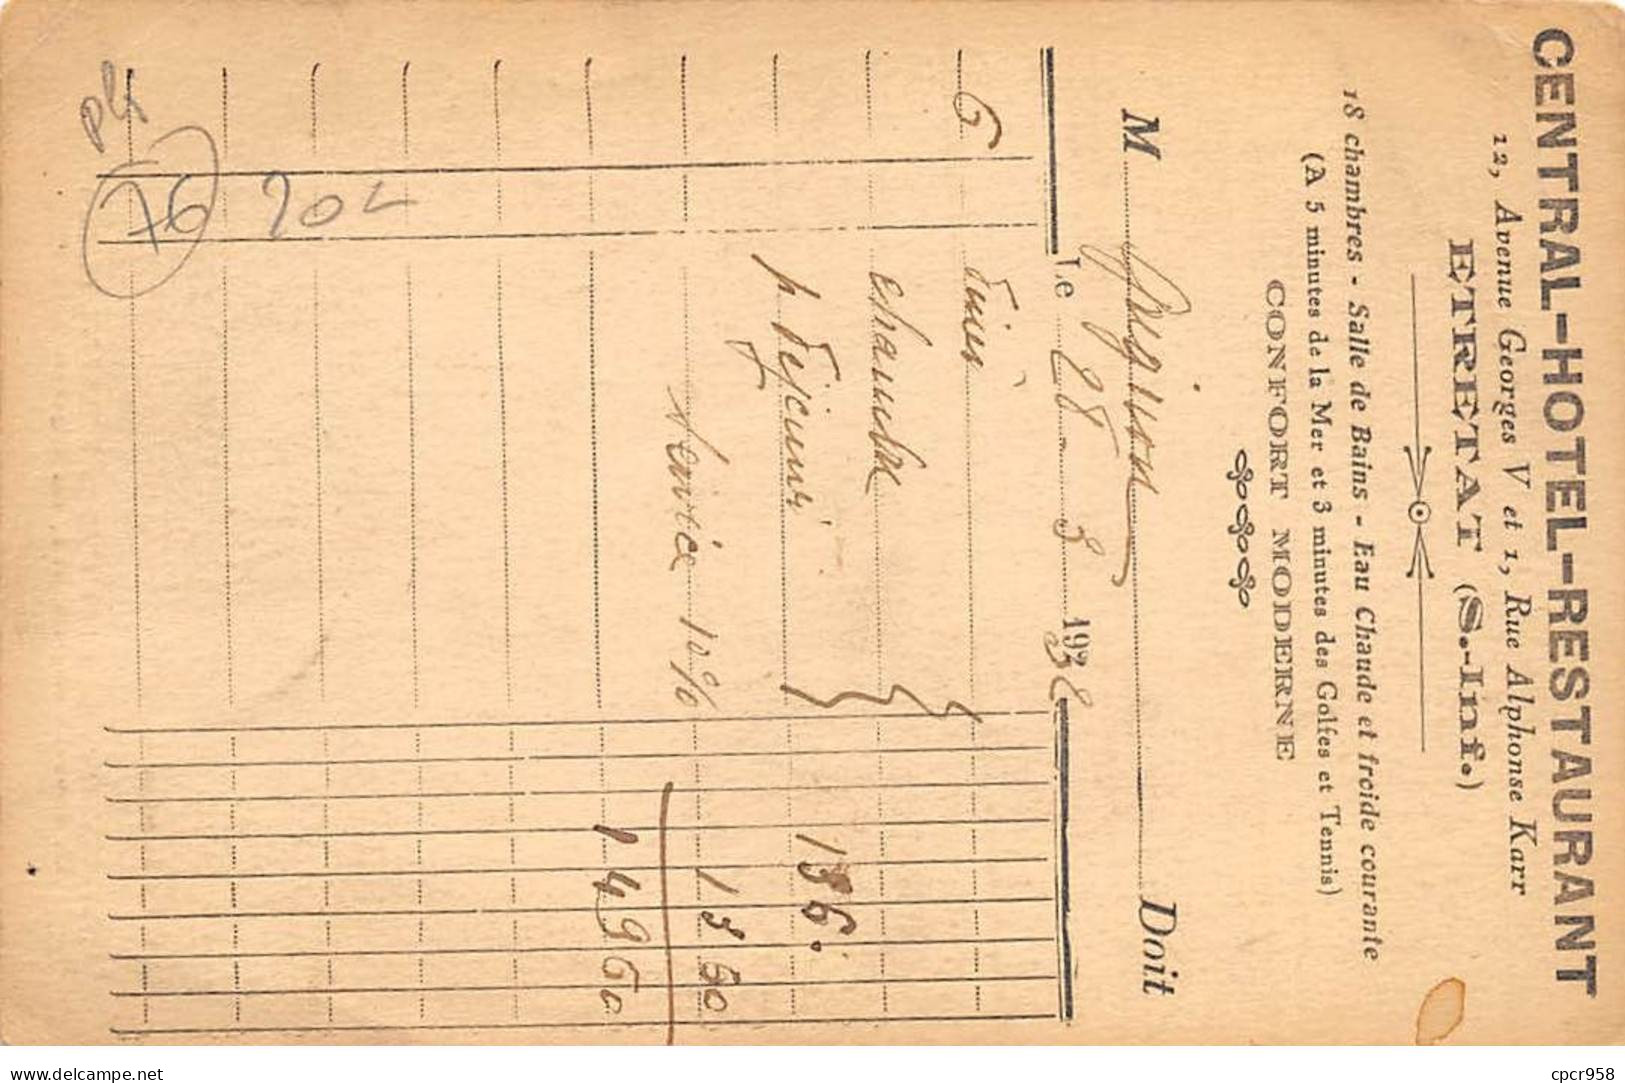 CENTRAL-HOTEL-RESTAURANT
12, Avenue Georges V et 1, Rue Alphonse Karr
ETRETAT (S.-Inf.)
18 chambres - Salle de Bains - Eau Chaude et froide courante
(A 5 minutes de la Mer et 3 minutes des Golfes et Tennis)
CONFORT MODERNE
M Doit
Le 28 - 3 1938
6
chambre
p Dejeuné 136.
Service 10% 13 60
149 60
76
delcampe.net
cpcr958